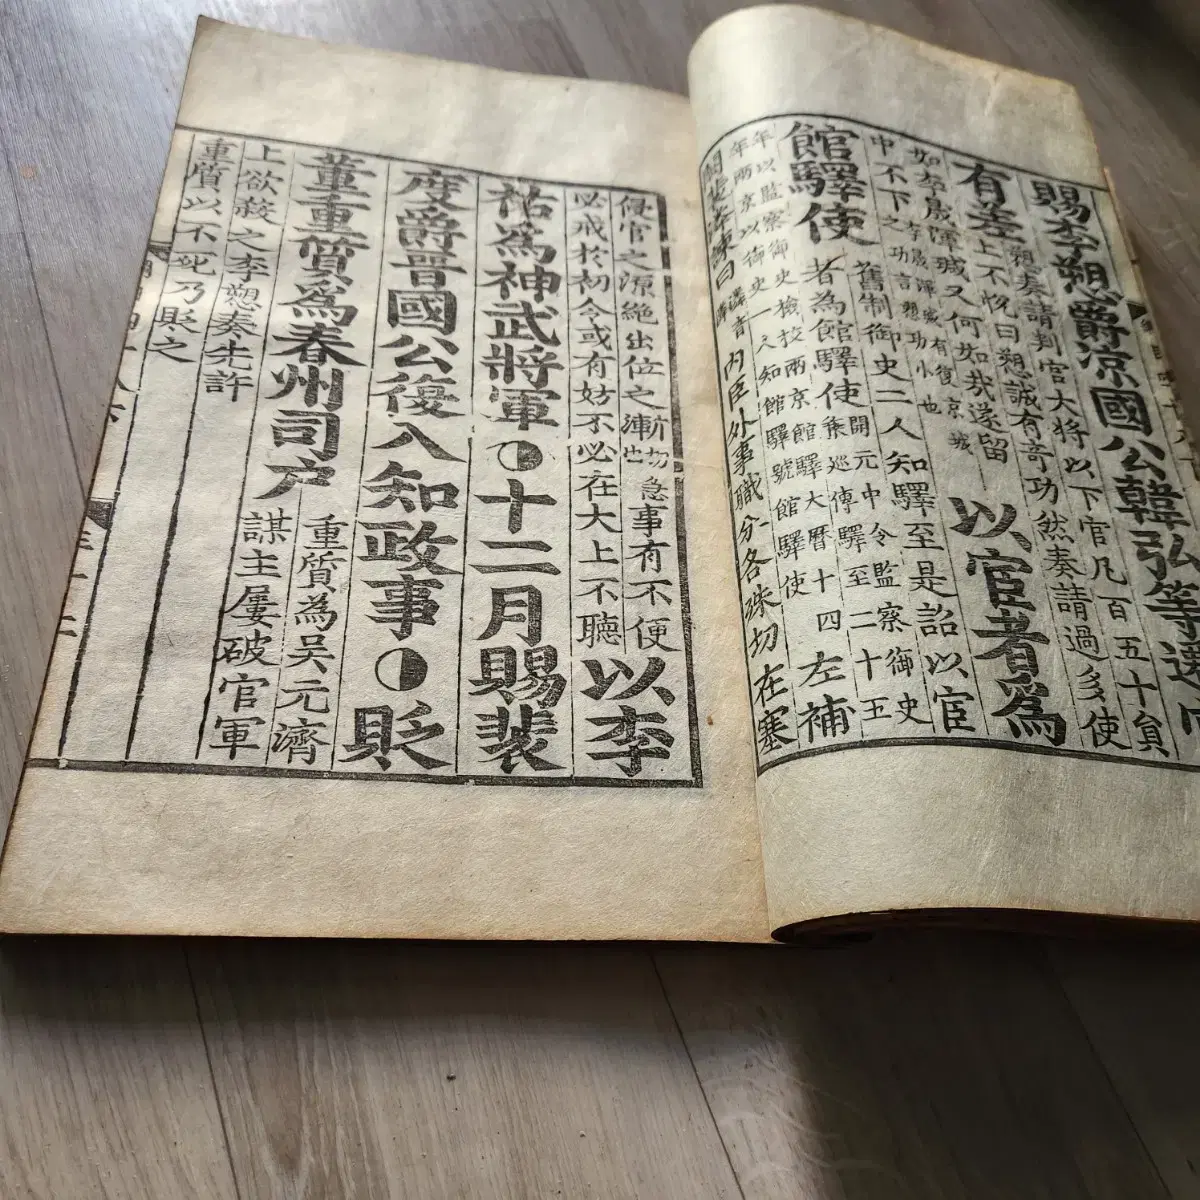 賜李愬爵涼國公韓弘等遷
有差
愬奏請判官大將以下官凡百五十員
上不悅曰愬誠有奇功然奏請過多使
如李晟渾瑊又何如哉遂留
中不下
如李晟渾瑊有復京城
之功言愬功小也
以宦者爲
館驛使
舊制御史二人知驛至是詔以宦
者為館驛使
開元中令監察御史
兼巡傳驛至二十五
年以監察御史檢校兩京館驛大曆十四
年兩京以御史一人知館驛號館驛使
左補
闕裴潾諫曰
潾音
內臣外事職分各殊切在塞
侵官之源絕出位之漸
事有不便
必戒於初令或有妨不必在大上不聽
以李
祐爲神武將軍◐十二月賜裴
度爵晉國公復入知政事◐貶
董重質爲春州司戶
重質為吳元濟
謀主屢破官軍
上欲殺之李愬奏先許
重質以不死乃貶之